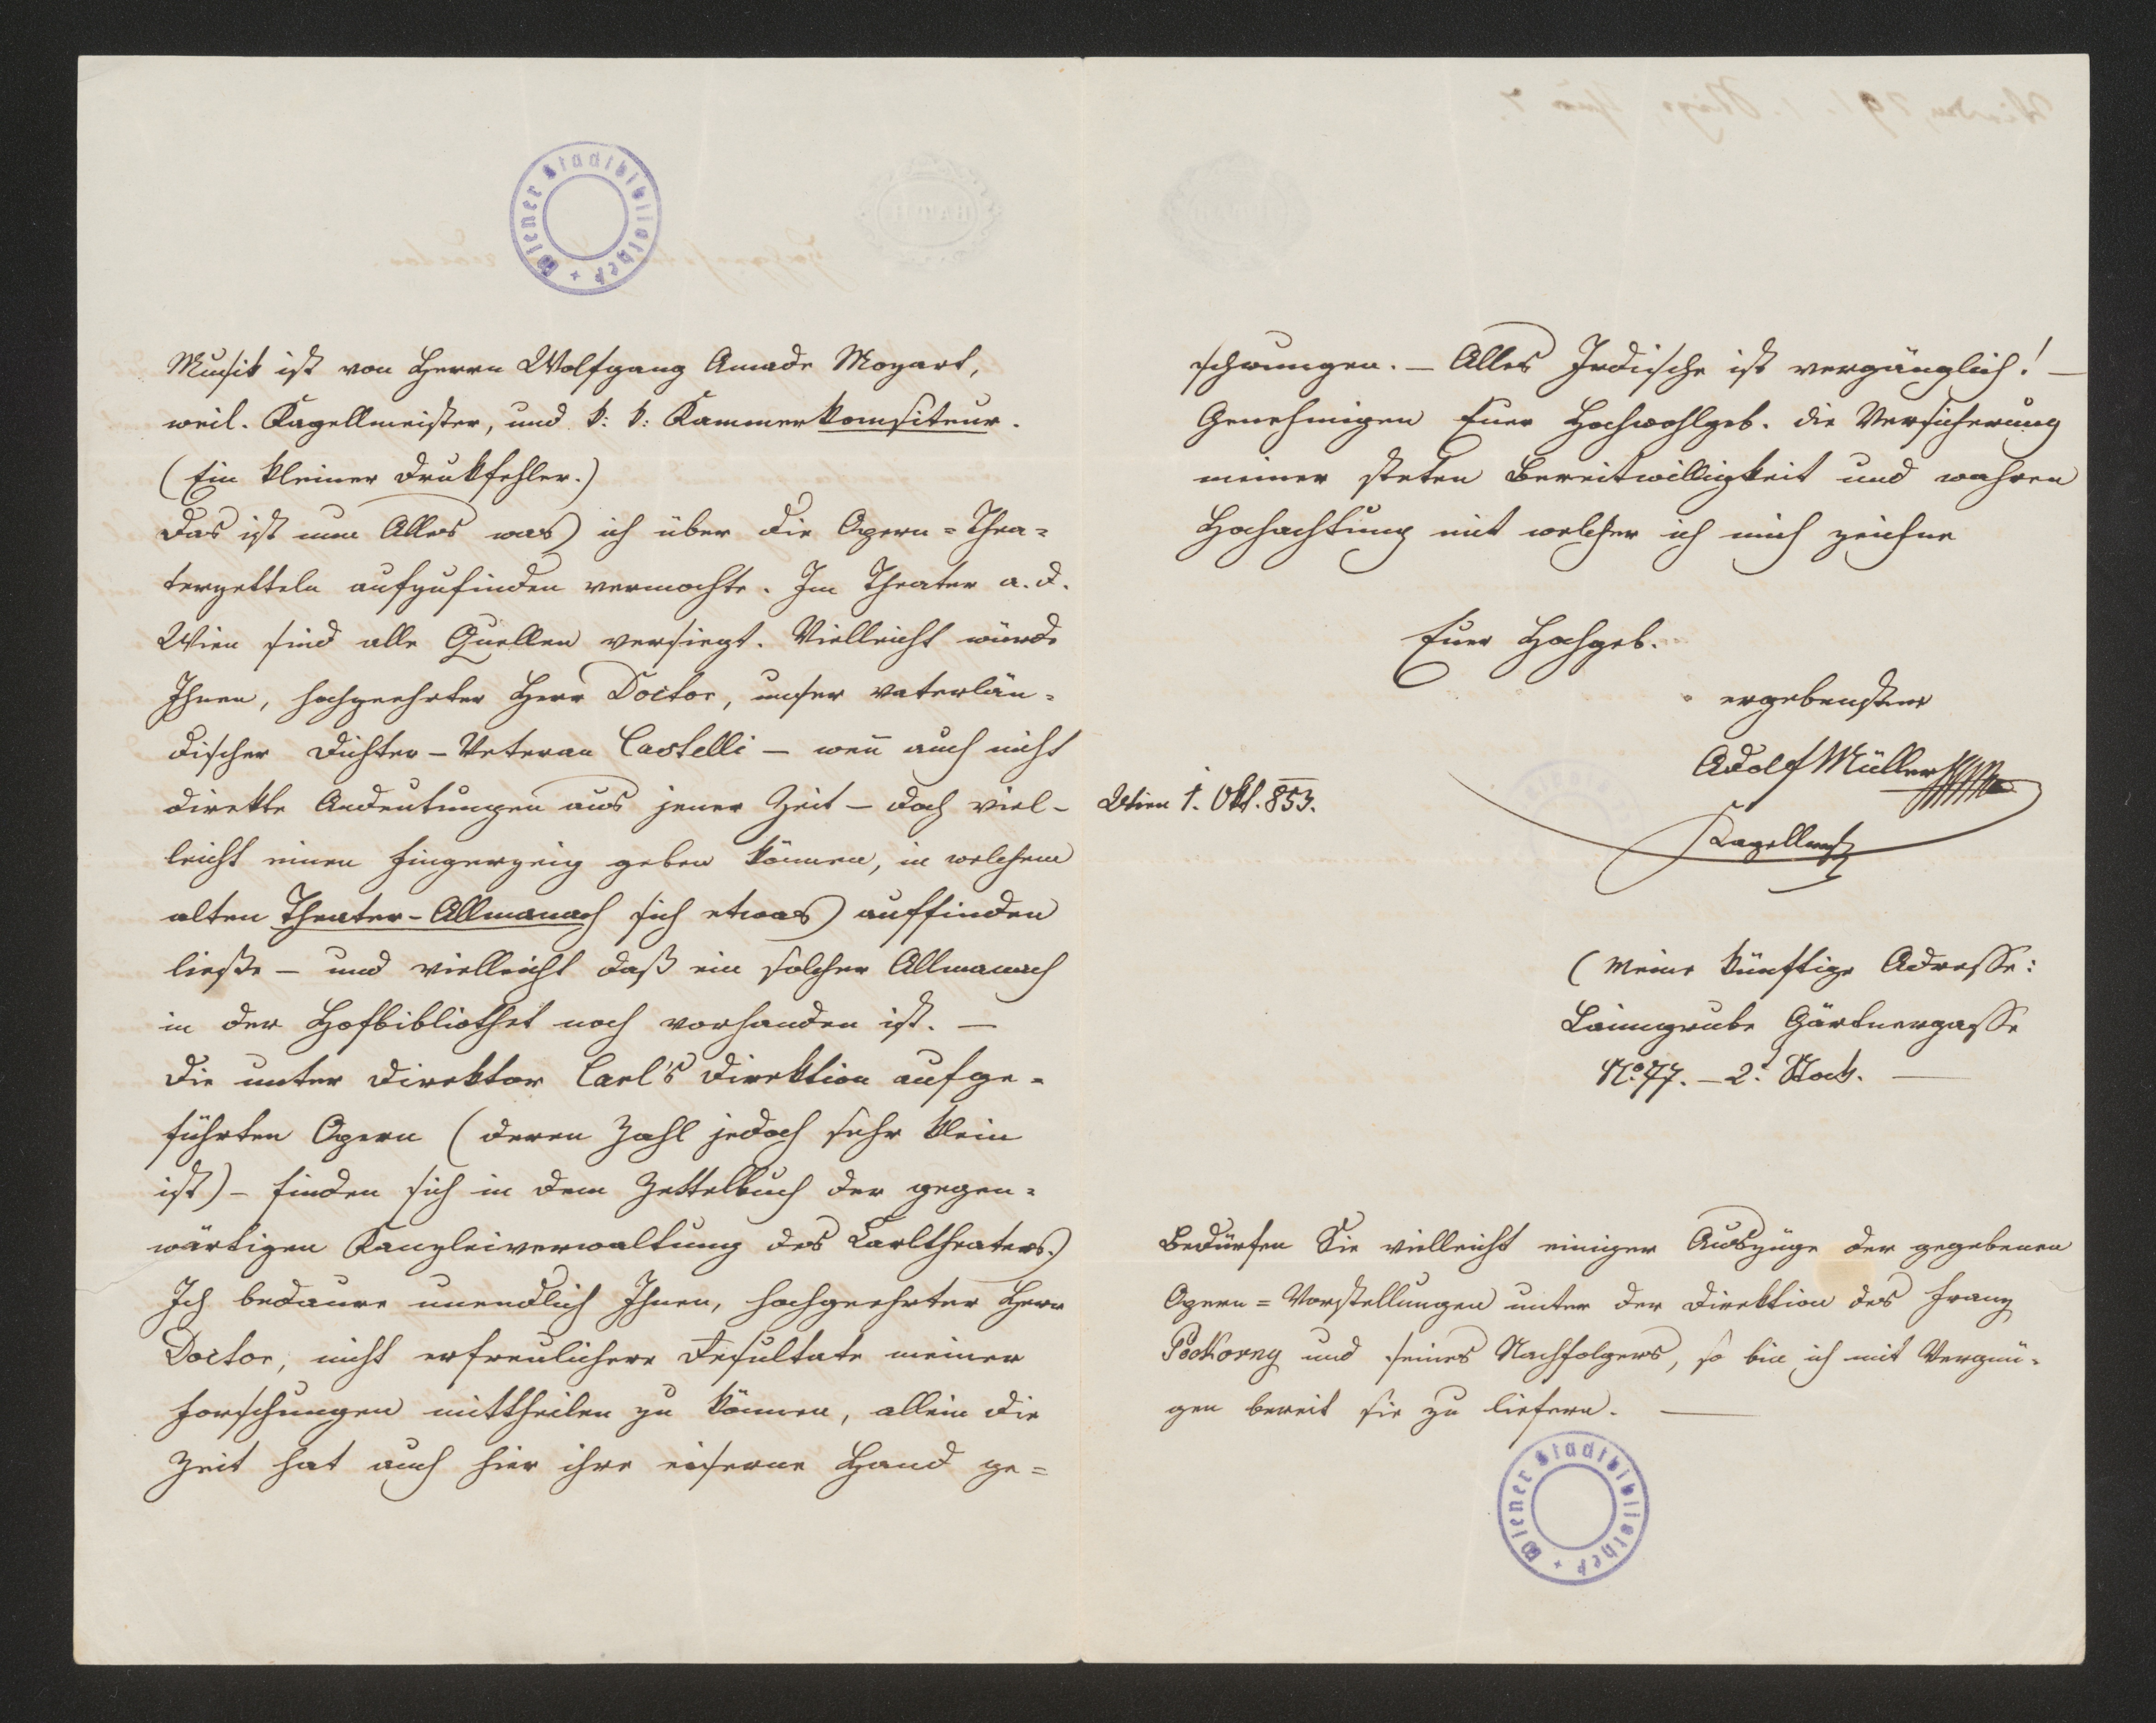 Wiener Stadtbibliothek
Musik ist von Herrn Wolfgang Amade Mozart,
weil. Kapellmeister, und k: k: Kammerkomsiteur.
(Ein kleiner Drukfehler.)
Das ist nun Alles was ich über die Opern=Thea=
terzetteln aufzufinden vermochte. Im Theater a. d.
Wien sind alle Quellen versiegt. Vielleicht würde
Ihnen, hochgeehrter Herr Doctor, unser vaterlän=
discher Dichter-Veteran Castelli - weñ auch nicht
direkte Andeutungen aus jener Zeit - doch viel-
leicht einen Fingerzeig geben können, in welchem
alten Theater-Allmanach sich etwas auffinden
ließe - und vielleicht daß ein solcher Allmanach
in der Hofbibliothek noch vorhanden ist. -
Die unter Direktor Carl's Direktion aufge=
führten Opern (deren Zahl jedoch sehr klein
ist) - finden sich in dem Zettelbuch der gegen=
wärtigen Kanzleiverwaltung des Carltheaters.
Ich bedaure unendlich Ihnen, hochgeehrter Herr
Doctor, nicht erfreulichere Resultate meiner
Forschungen mittheilen zu können, allein die
Zeit hat auch hier ihre eiserne Hand ge=
schwungen. - Alles Irdische ist vergänglich! -
Genehmigen Euer Hochwohlgeb. die Versicherung
meiner steten Bereitwilligkeit und wahren
Hochachtung mit welcher ich mich zeichne
Euer Hochgeb.
ergebenster
Adolf Müller
Kapellmstr
Wien 1. Okt. 853.
(Meine künftige Adresse:
Laimgrube Gärtnergasse
No. 77. - 2t. Stock. -
Bedürfen Sie vielleicht einiger Auszüge der gegebenen
Opern=Vorstellungen unter der Direktion des Franz
Pockorny und seines Nachfolgers, so bin ich mit Vergnü=
gen bereit sie zu liefern. -
Wiener Stadtbibliothek